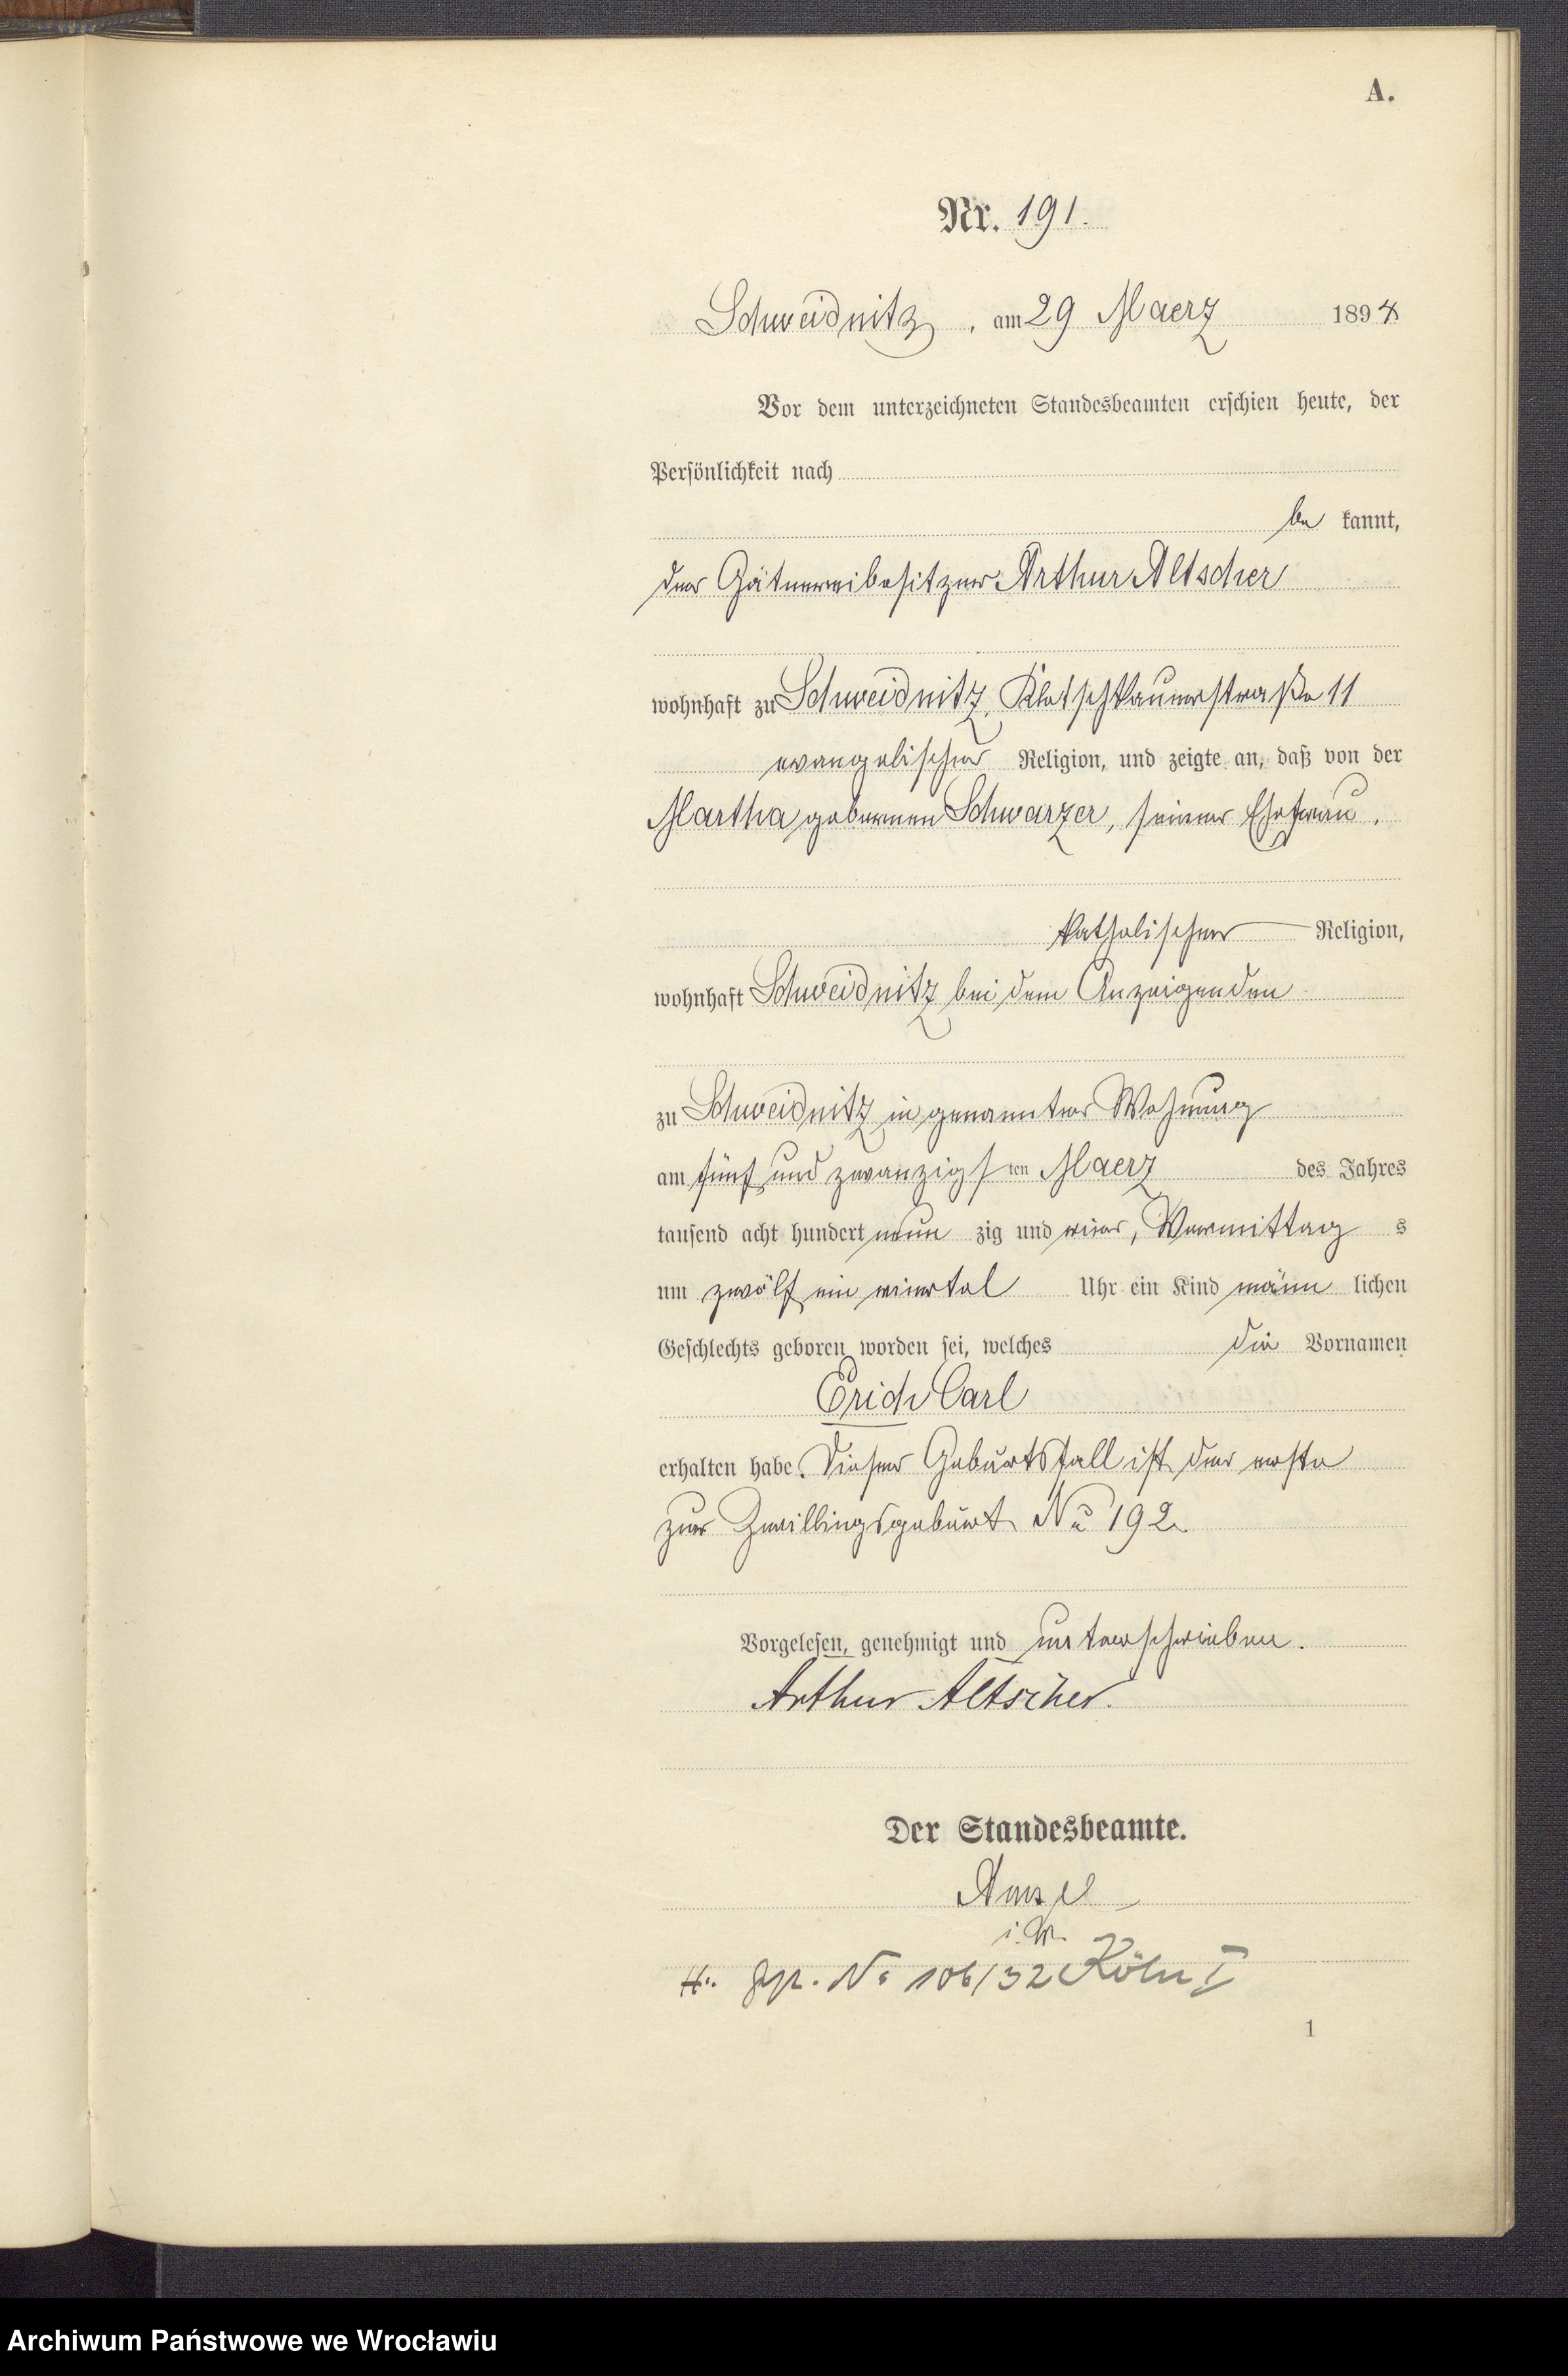 A.
Nr. 191.
Schweidnitz, am 29 Maerz 1894
Vor dem unterzeichneten Standesbeamten erschien heute, der
Persönlichkeit nach
be kannt,
der Gätnereibesitzer Arthur Altscher
wohnhaft zu Schweidnitz, Kletschkauerstraße 11
evangelischer Religion, und zeigte an, daß von der
Martha geborenen Schwarzer, seiner Ehefrau,
katholischer Religion,
wohnhaft Schweidnitz bei dem Anzeigenden
zu Schweidnitz in genannter Wohnung
am fünf und zwanzigsten Maerz des Jahres
tausend acht hundert neun zig und vier, Vormittag s
um zwölf ein viertel Uhr ein Kind männ lichen
Geschlechts geboren worden sei, welches die Vornamen
Erich Carl
erhalten habe. Dieser Geburtsfall ist der erste
zur Zwillingsgeburt No 192.
Vorgelesen, genehmigt und unterschrieben.
Arthur Altscher.
Der Standesbeamte.
i. V.
No 106/32 Köln I
1
Archiwum Państwowe we Wrocławiu